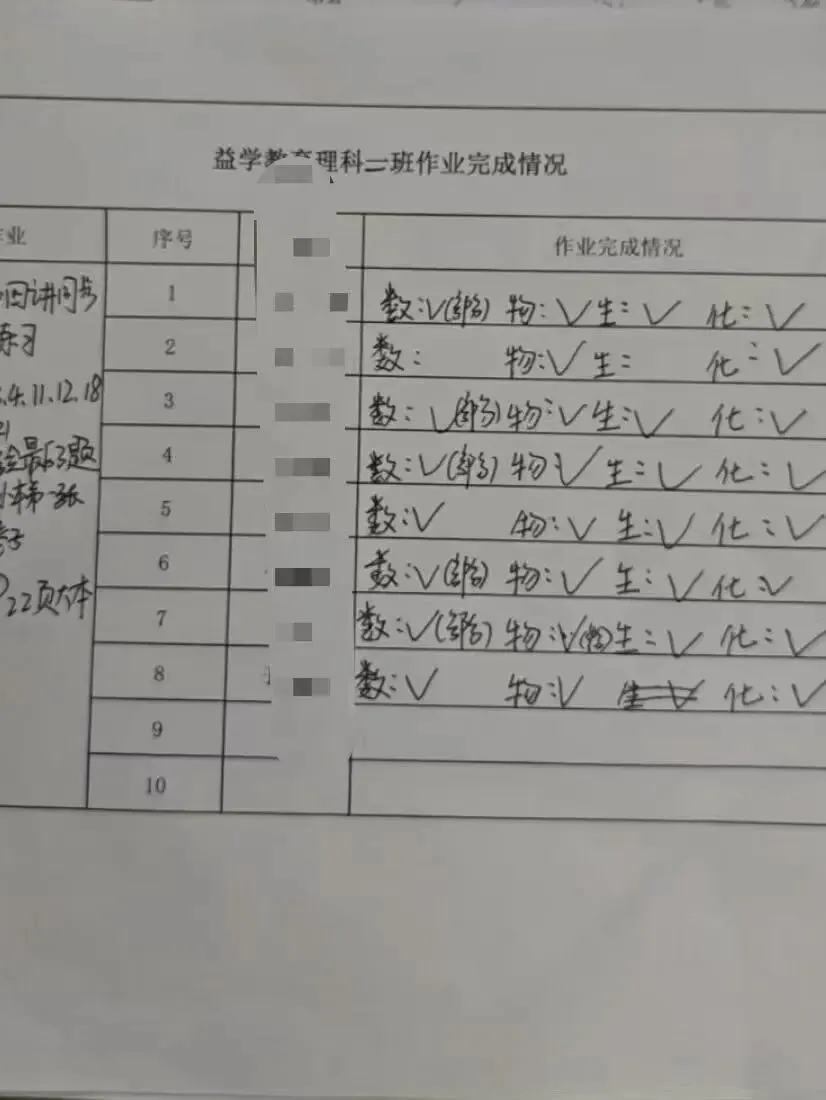 益学教育理科一班作业完成情况
业 序号 作业完成情况
1 数:√(部分) 物:√ 生:√ 化:√
2 数: 物:√ 生: 化:√
3 数:√(部分) 物:√ 生:√ 化:√
4 数:√(部分) 物:√ 生:√ 化:√
5 数:√ 物:√ 生:√ 化:√
6 数:√(部分) 物:√ 生:√ 化:√
7 数:√(部分) 物:√(部分) 生:√ 化:√
8 数:√ 物:√ 生:√ 化:√
9
10
四讲同步
练习
4.11.12.18
21
最后3题
第一张
22页大本